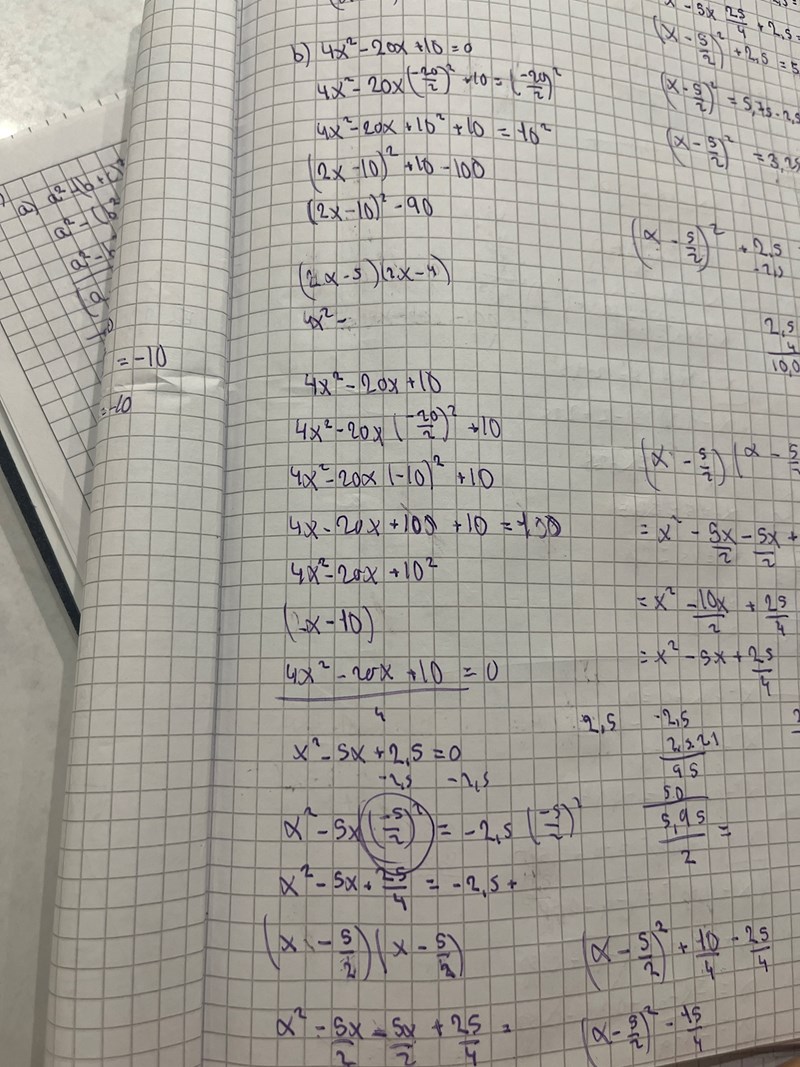 b) 4x² - 20x + 10 = 0
4x² - 20x (-20/2)² + 10 = (-20/2)²
4x² - 20x + 10² + 10 = 10²
(2x - 10)² + 10 - 100
(2x - 10)² - 90
(2x - 5)(2x - 4)
4x² -
4x² - 20x + 10
4x² - 20x (-20/2)² + 10
4x² - 20x (-10)² + 10
4x - 20x + 100 + 10 =
4x² - 20x + 10²
(2x - 10)
4x² - 20x + 10 = 0
4
x² - 5x + 2,5 = 0
-2,5 -2,5
x² - 5x (-5/2)² = -2,5 (-5/2)²
x² - 5x + 25/4 = -2,5 +
(x - 5/2)(x - 5/2)
x² - 5x/2 - 5x/2 + 25/4 =
x - 5x 25/4 + 2,5 =
(x - 5/2)² + 2,5 = 5
(x - 5/2)² = 5,75 - 2,5
(x - 5/2)² = 3,25
(x - 5/2)² + 2,5
-2,5
2,5
4
10,0
(x - 5/2)(x - 5/2
= x² - 5x/2 - 5x/2 +
= x² - 10x/2 + 25/4
= x² - 5x + 25/4
2,5 -2,5
95
50
5,95/2 =
(x - 5/2)² + 10/4 - 25/4
(x - 5/2)² - 15/4
a) a² + (b + c)²
a² - (b²
= -10
= -10